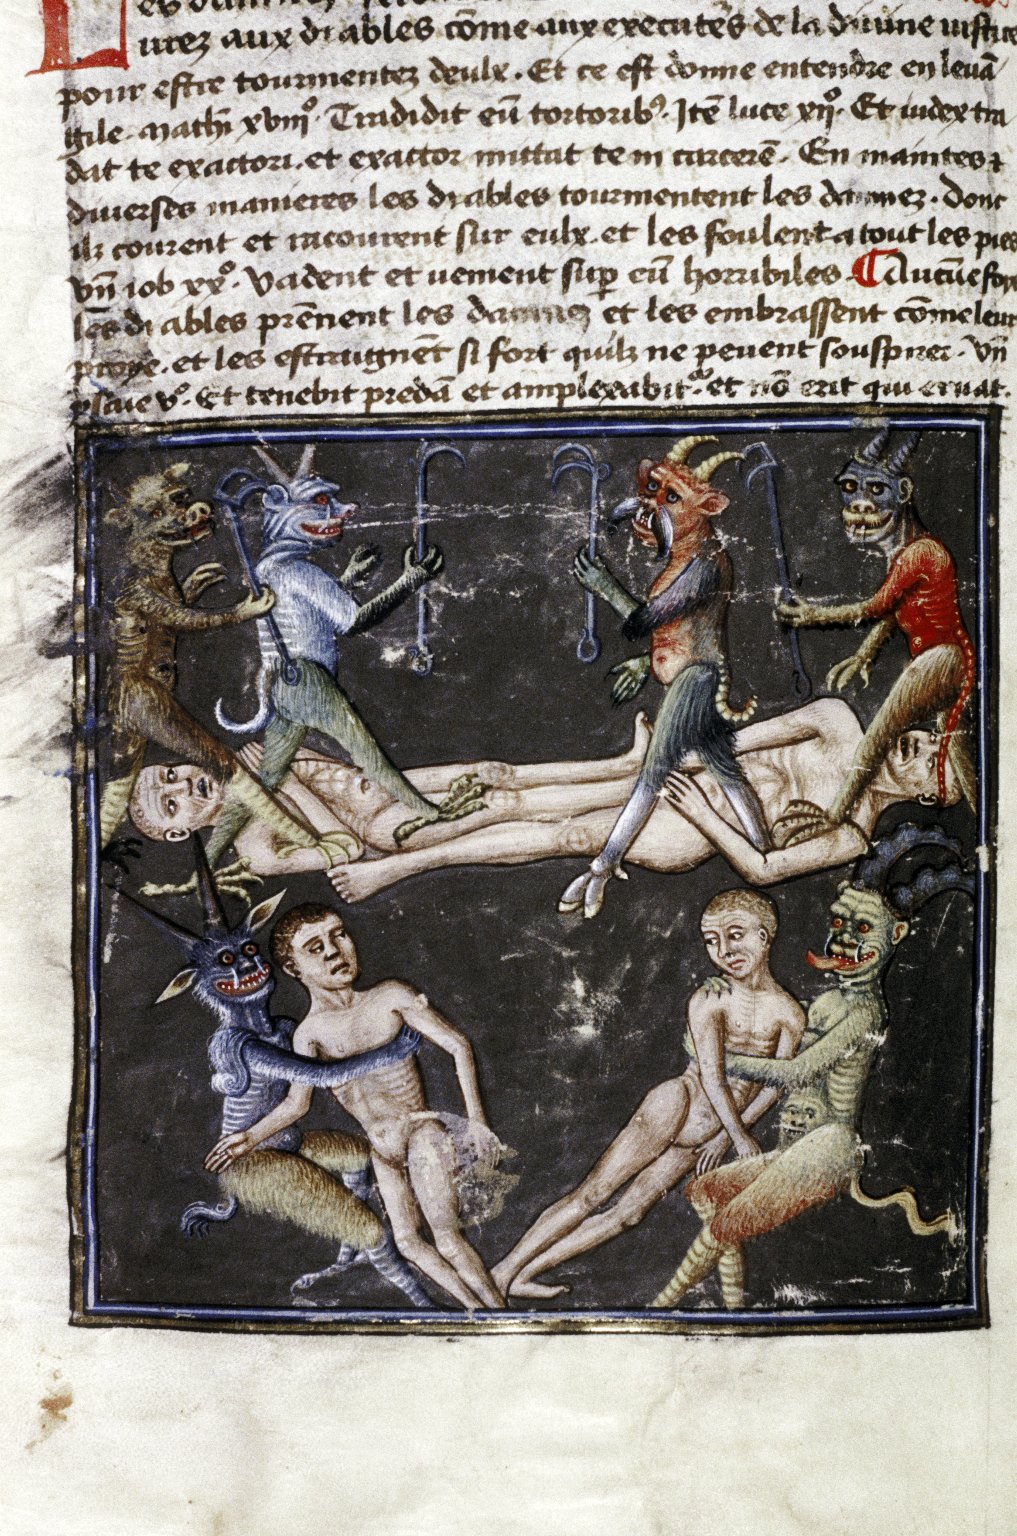 es damnez
liurez aux diables cōme aux executēs de la diuine iustice
pour estre tourmentez deulx. Et ce est donne entendre en leuā
gile. Math̄ xviiiº. Tradidit eū tortoribꝰ. Itē luce xijº. Et iudex tra
dat te exactori. et exactor mittat te in carcerē. En maintes ⁊
diuerses manieres les diables tourmentent les dampnez. donc
ilz courent et racourent sur eulx. et les foulent a tout les pies
vn̄ iob xxº. Vadent et uenient sup̄ eū horribiles. ¶ Aucūe foys
les diables prēnent les dampnez et les embrassent cōme leur
proye. et les estraingnēt si fort quilz ne peuent souspirer. Vn̄
ysaie vº. Et tenebit predā et amplexabitʳ. et nō erit qui eruat.